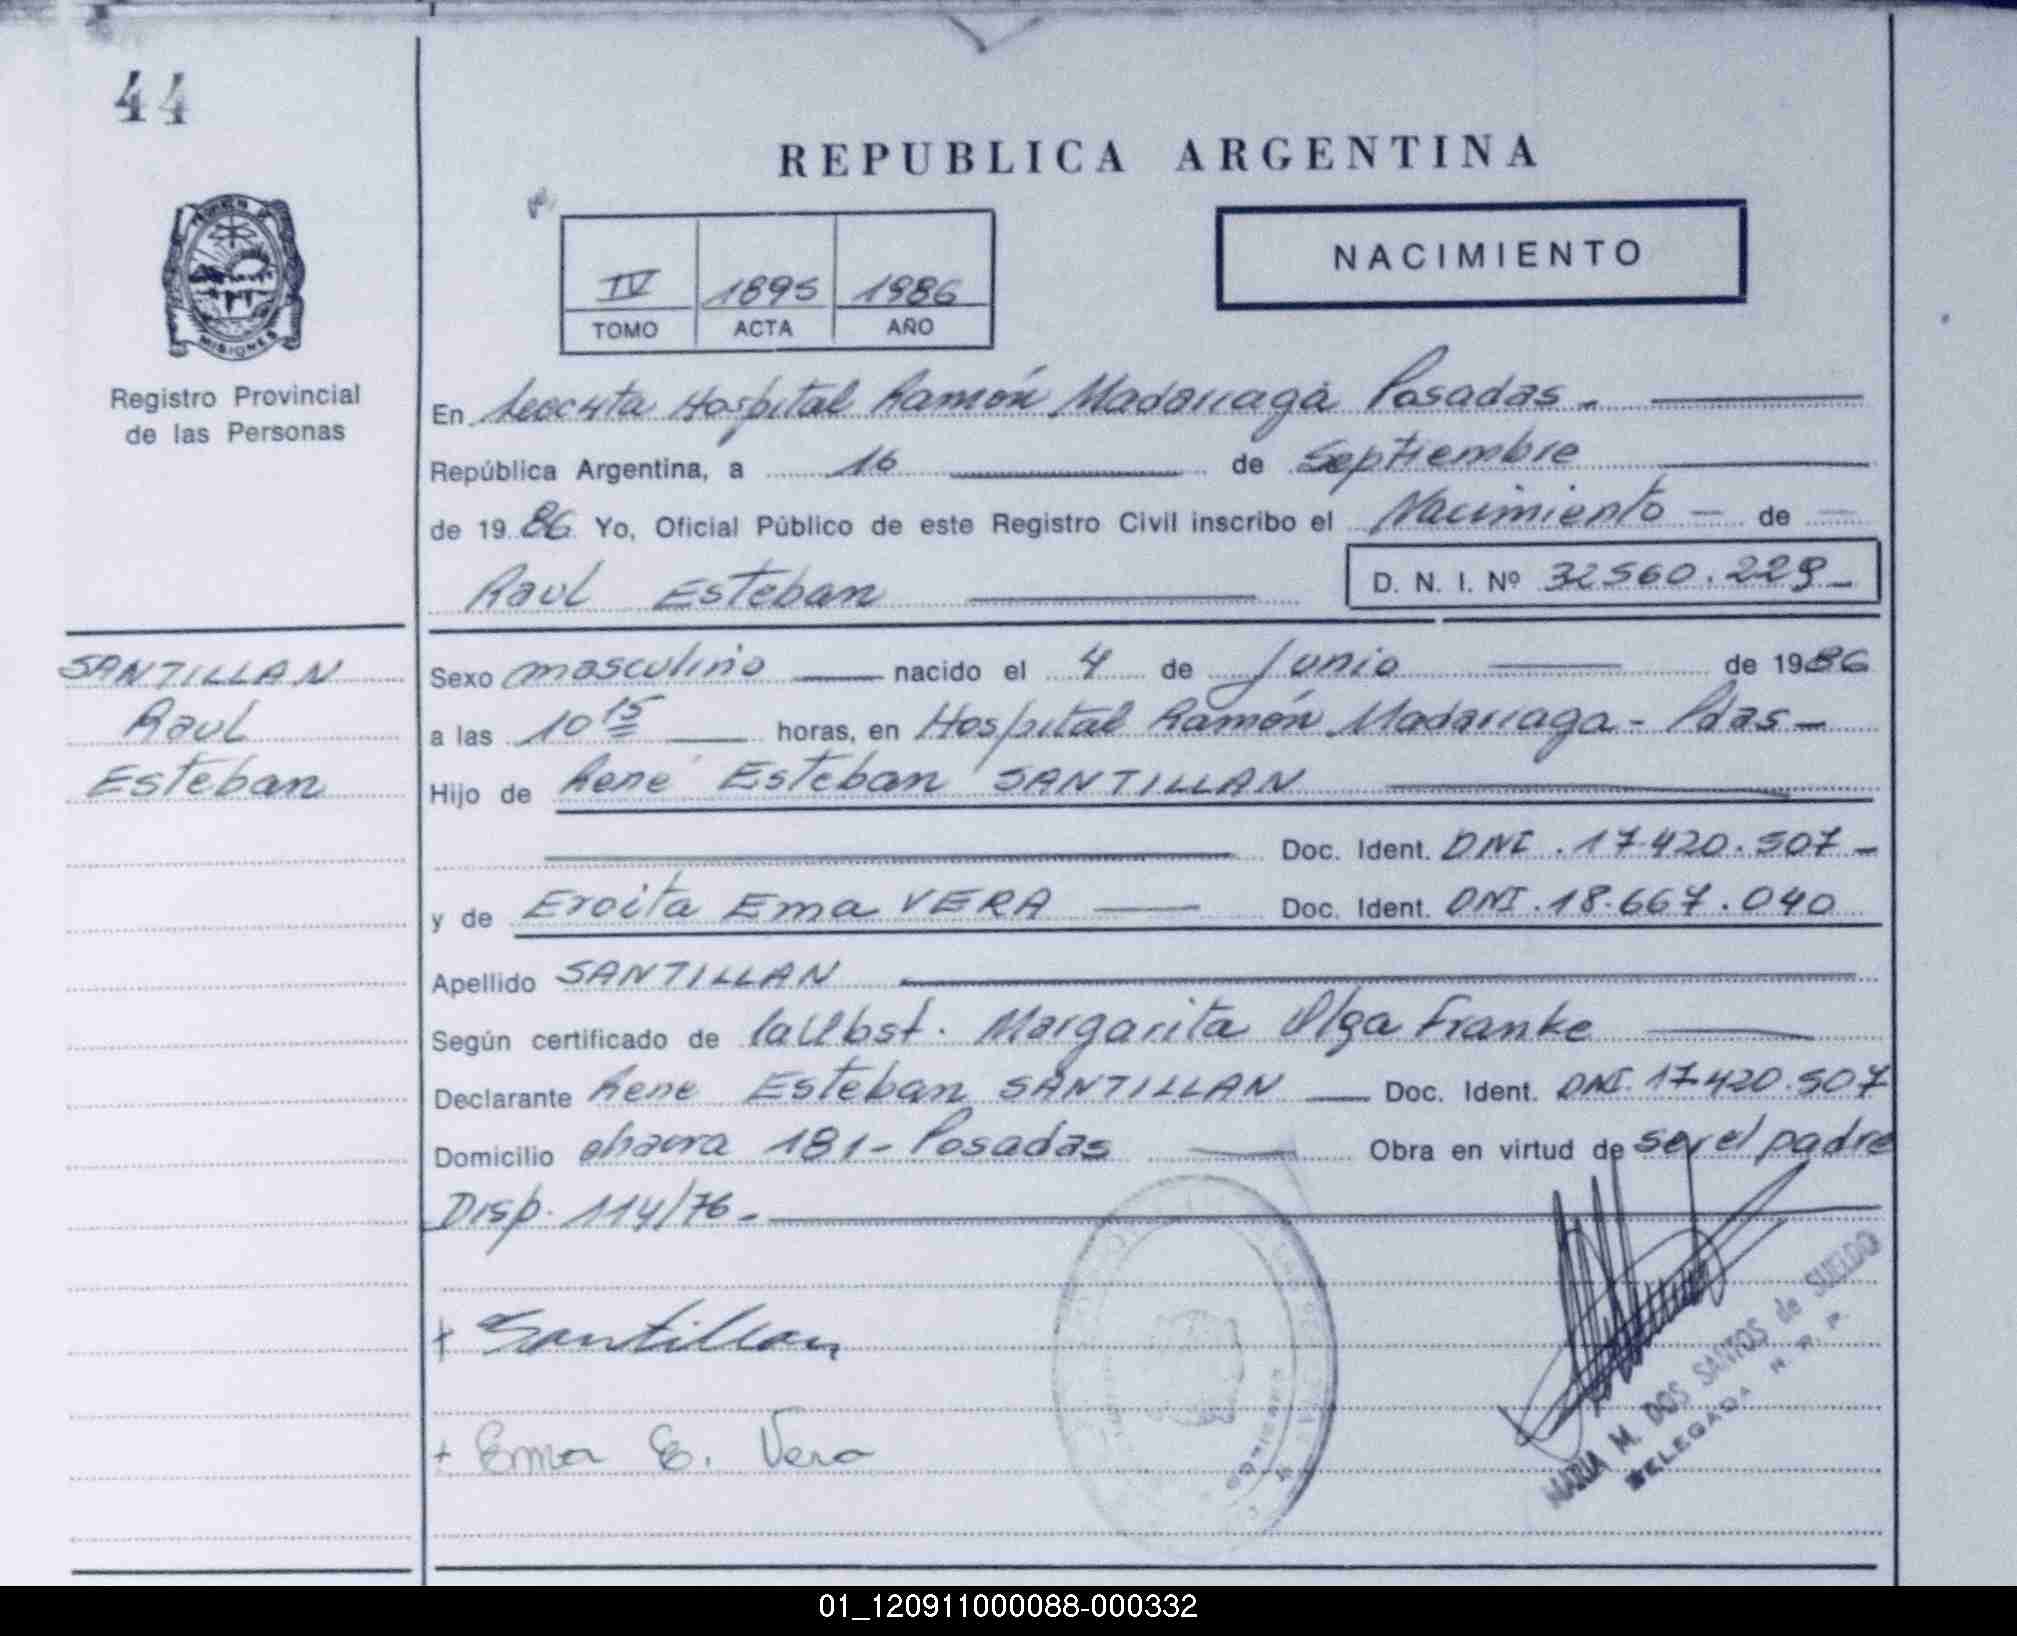 44
REPUBLICA ARGENTINA
NACIMIENTO
IV 1895 1986
TOMO ACTA AÑO
MISIONES
Registro Provincial
de las Personas
En Hospital Ramón Madariaga Posadas.
República Argentina, a 16 de Septiembre
de 1986 Yo, Oficial Público de este Registro Civil inscribo el Nacimiento - de
Raul Esteban D. N. I. Nº 32560.229-
SANTILLAN
Raul
Esteban
Sexo masculino nacido el 4 de Junio de 1986
a las 10 15 horas, en Hospital Ramón Madariaga - Pdas -
Hijo de René Esteban SANTILLAN
Doc. Ident. DNI. 17.420.507-
y de Eroita Ema VERA Doc. Ident. DNI. 18.667.040
Apellido SANTILLAN
Según certificado de la Obst. Margarita Olga Franke
Declarante Rene Esteban SANTILLAN Doc. Ident. DNI. 17.420.507
Domicilio chacra 181- Posadas Obra en virtud de ser el padre
Disp. 114/76.-
+ Santillan
+ Ema E. Vera
MARIA M. DOS SANTOS de SUELDO
DELEGADA R. P.
01_120911000088-000332